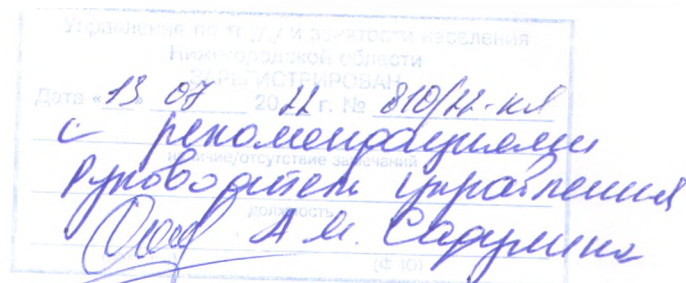 Управление по труду и занятости населения
Нижегородской области
ЗАРЕГИСТРИРОВАН
Дата «13» 07 2022 г. № 810/22-кл
с рекомендациями
наличие/отсутствие замечаний
Руководитель управления
должность
А.М. Садулина
(ФИО)